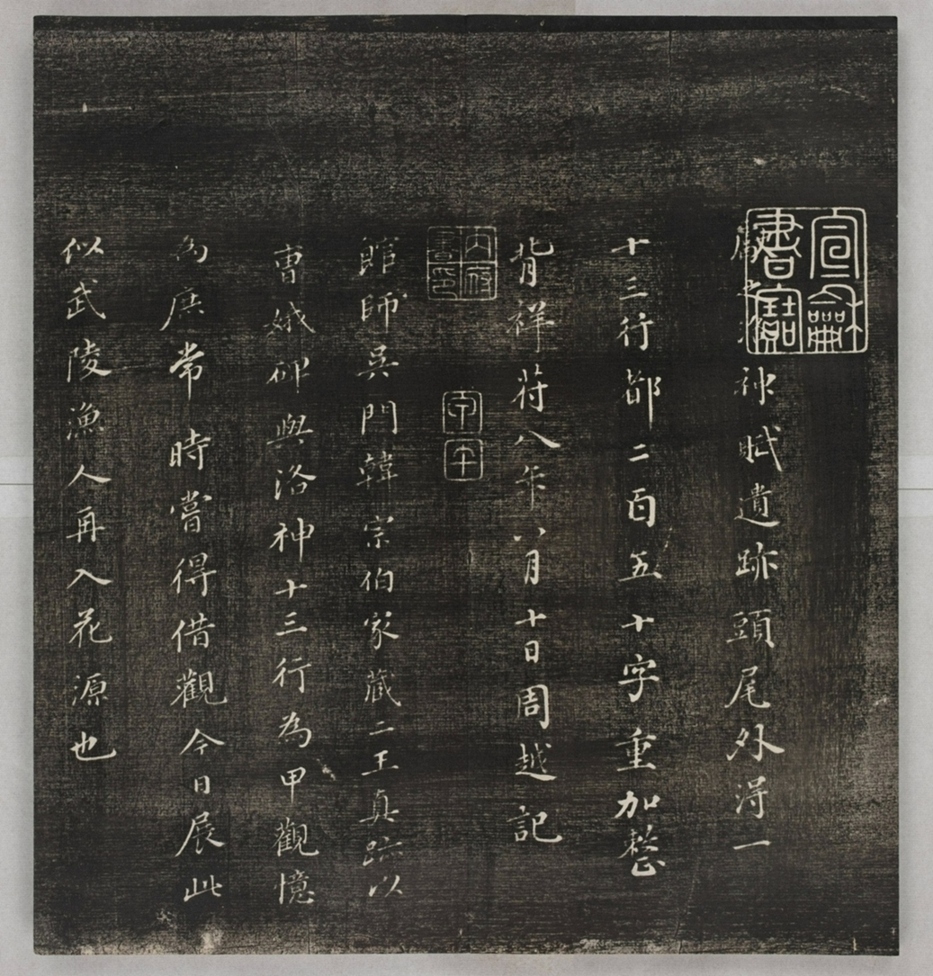 宣龢書寶
之洛神賦遺跡頭尾外得一
十三行都二百五十字重加整
背祥苻八年八月十日周越記
內府書印
館師吳門韓宗伯家藏二王真跡以
曹娥碑與洛神十三行為甲觀憶
為庶常時嘗得借觀今日展此
似武陵漁人再入花源也